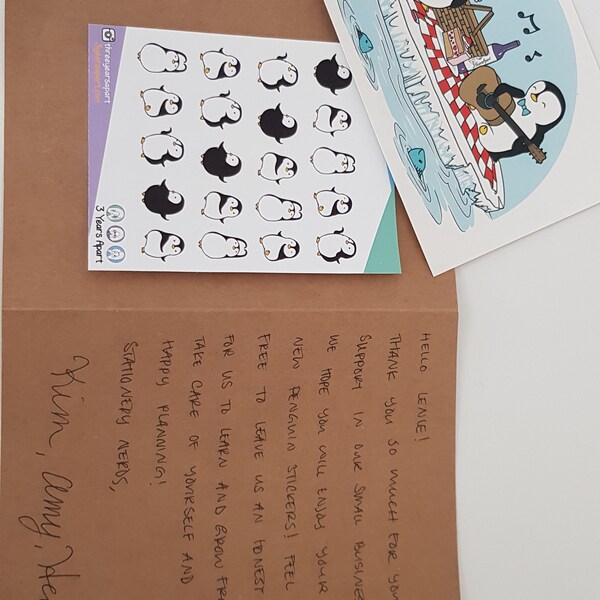 threeyearsapart
3 Years Apart
HELLO LENIE!
THANK YOU SO MUCH FOR YOU
SUPPORT IN OUR SMALL BUSINES
WE HOPE YOU WILL ENJOY YOUR
NEW PENGUIN STICKERS! FEEL
FREE TO LEAVE US AN HONEST
FOR US TO LEARN AND GROW FR
TAKE CARE OF YOURSELF AND
HAPPY PLANNING!
STATIONERY NERDS,
Kim, Amy, He